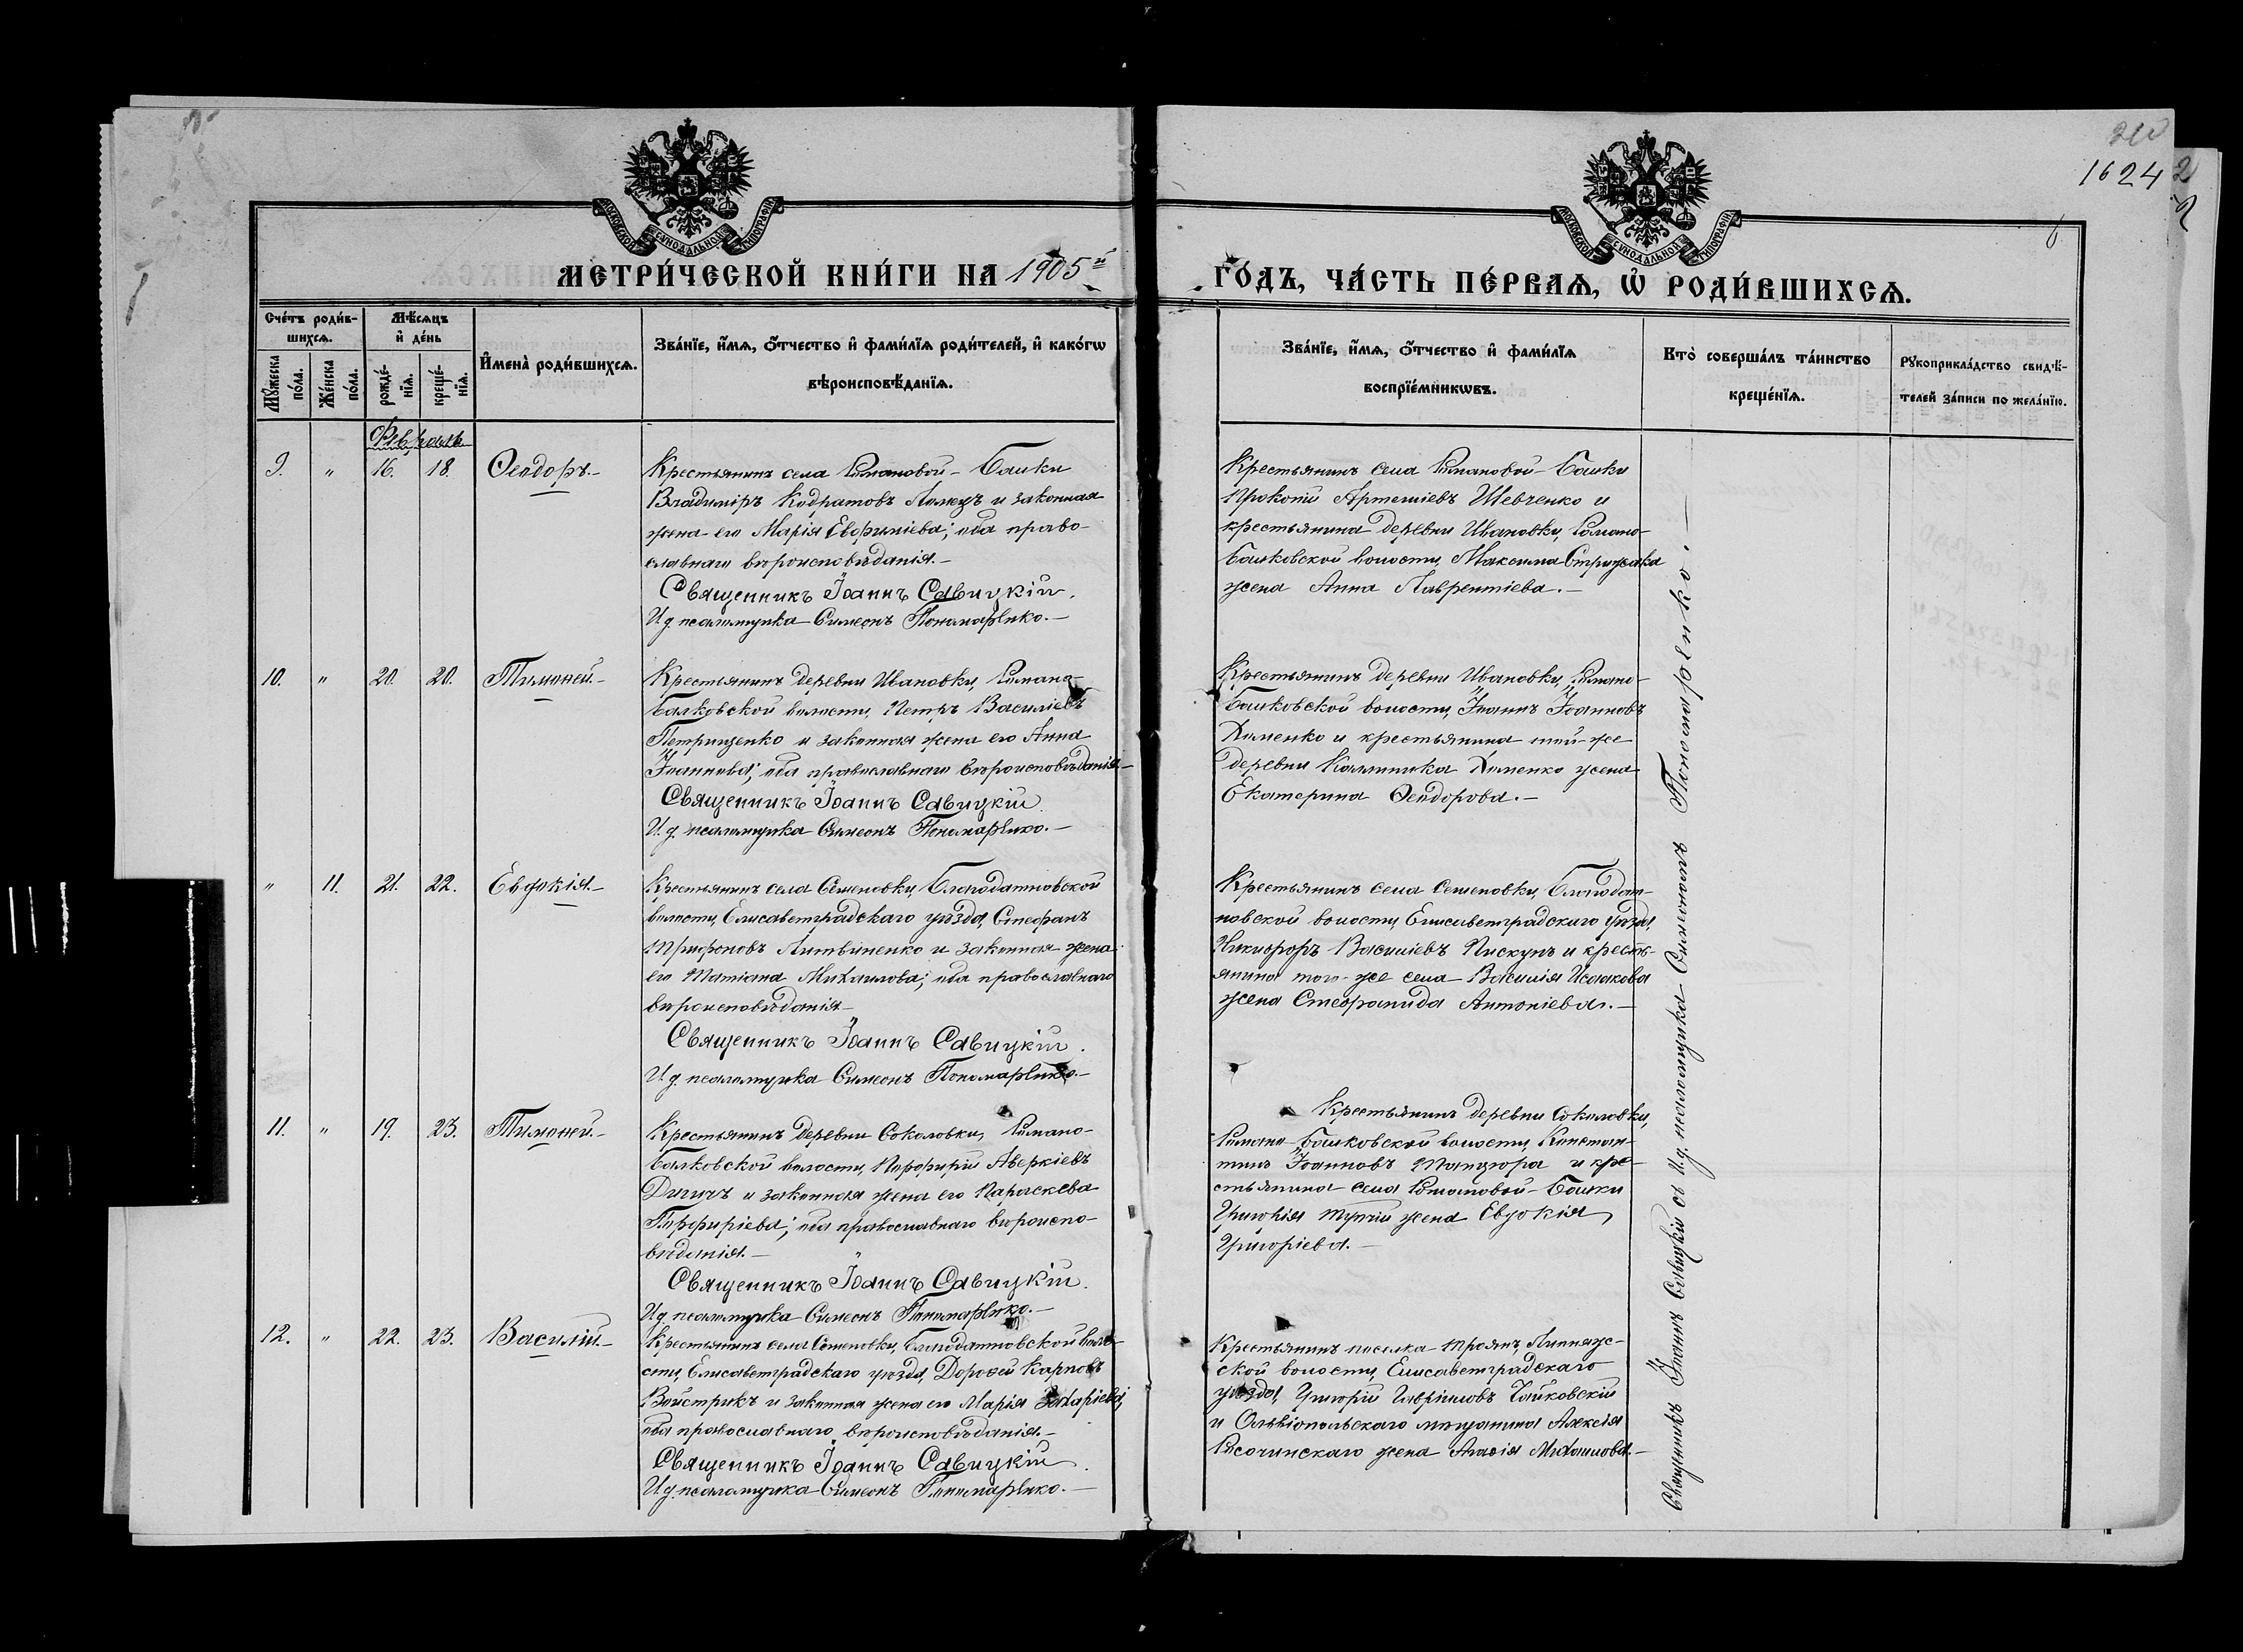 1624
МОСКОВСКОЙ СУНОДАЛЬНОЙ ТИПОГРАФІИ
МОСКОВСКОЙ СУНОДАЛЬНОЙ ТИПОГРАФІИ
МЕТРИ́ЧЕСКОЙ КНИ́ГИ НА 1905й
ГО́ДЪ, ЧА́СТЬ ПЕ́РВАѦ, Ѡ҆ РОДИ́ВШИХСѦ.
Сче́тъ роди́в-
шихсѧ.
Мꙋ́жеска по́ла.
Же́нска по́ла.
Мѣ́сѧцъ
и҆ де́нь
рожде́-нїѧ.
креще́-нїѧ.
И҆мена̀ роди́вшихсѧ.
Зва́нїе, и҆́мѧ, ѻ҆́тчество и҆ фами́лїѧ роди́телей, и҆ како́гѡ
вѣроисповѣ́данїѧ.
Зва́нїе, и҆́мѧ, ѻ҆́тчество и҆ фами́лїѧ
воспрїе́мникѡвъ.
Кто̀ соверша́лъ та́инство
креще́нїѧ.
Рꙋкоприкла́дство свидѣ́-
телей за́писи по жела́нїю.
Февраль
9. " 16. 18. Ѳеодоръ.-
Крестьянинъ села Романовой-Балки
Владиміръ Кодратовъ и законная
жена его Марія Евфиміева; оба право-
славнаго вѣроисповѣданія.-
Священникъ Іоаннъ Савицкій.
И. д. псаломщика Симеонъ Пономаренко.-
Крестьянинъ села Романовой-Балки
Прокопій Артеміевъ Шевченко и
крестьянина деревни Ивановки, Романо-
Балковской волости, Максима Стрижака
жена Анна Лаврентіева.-
10. " 20. 20. Тимоѳей.-
Крестьянинъ деревни Ивановки, Романо-
Балковской волости, Петръ Василіевъ
Петрищенко и законная жена его Анна
Іоаннова; оба православнаго вѣроисповѣданія-
Священникъ Іоаннъ Савицкій
И. д. псаломщика Симеонъ Пономаренко.-
Крестьянинъ деревни Ивановки, Романо-
Балковской волости, Іоаннъ Іоанновъ
Хименко и крестьянина той-же
деревни Каллиника Хименко жена
Екатерина Ѳеодорова.-
" 11. 21. 22. Евдокія.-
Крестьянинъ села Семеновки, Благодатновской
волости, Елисаветградскаго уѣзда, Стефанъ
Трифоновъ Литвиненко и законная жена
его Татіана Михаилова; оба православнаго
вѣроисповѣданія-
Священникъ Іоаннъ Савицкій.
И. д. псаломщика Симеонъ Пономаренко.-
Крестьянинъ села Семеновки, Благодат-
новской волости, Елисаветградскаго уѣзда,
Никифоръ Василіевъ Пискунъ и кресть-
янина того-же села Василія Исаакова
жена Стефанида Антоніева.-
11. " 19. 23. Тимоѳей.-
Крестьянинъ деревни Соколовки, Романо-
Балковской волости, Порфирій Аверкіевъ
и законная жена его Параскева
Порфиріева; оба православнаго вѣроиспо-
вѣданія.-
Священникъ Іоаннъ Савицкій.
И. д. псаломщика Симеонъ Пономаренко.-
Крестьянинъ деревни Соколовки,
Романо-Балковской волости, Констан-
тинъ Іоанновъ и кре-
стьянина села Романовой-Балки
жена Евдокія
Григоріева.-
12. " 22. 23. Василій.-
Крестьянинъ села Семеновки, Благодатновской воло-
сти, Елисаветградскаго уѣзда, Дороѳей Карповъ
Войстрикъ и законная жена его Марія Захаріева;
оба православнаго вѣроисповѣданія.-
Священникъ Іоаннъ Савицкій.
И. д. псаломщика Симеонъ Пономаренко.-
Крестьянинъ поселка Троянъ,
ской волости, Елисаветградскаго
уѣзда, Григорій Гавріиловъ Чайковскій
и Ольвіопольскаго мѣщанина Алексія
Песочинскаго жена Агаѳія Михаилова.-
Священникъ Іоаннъ Савицкій съ И. д. псаломщика Симеономъ Пономаренко.-